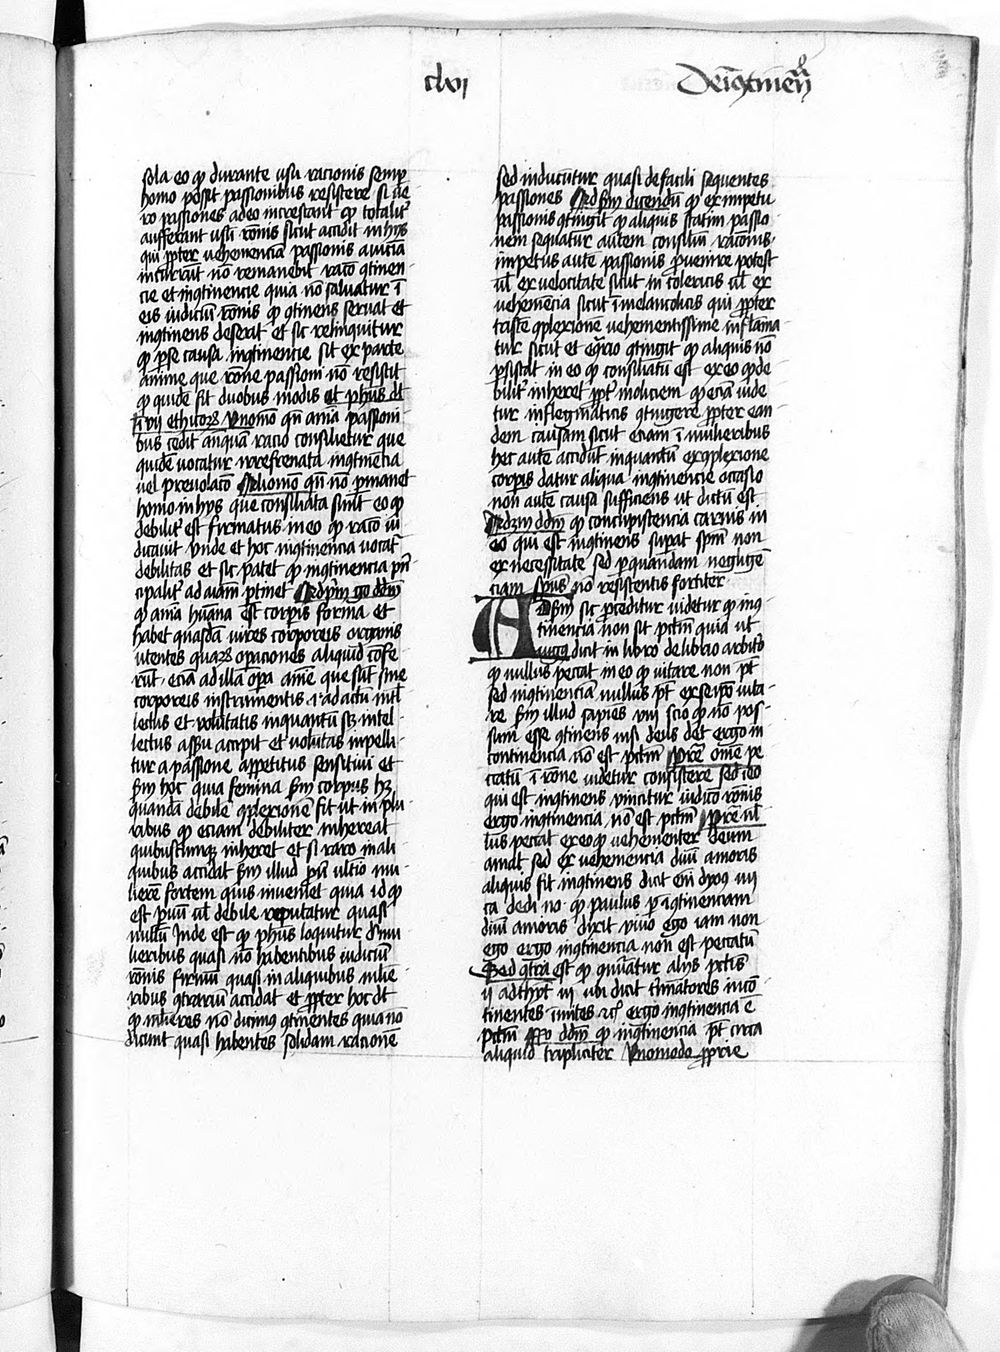 clvi
De īgtinēn
sola eo qꝫ durante usu racionis semꝑ
homo possit passionibus resistere si ūe
ro passiones adeo increscant qꝫ totalitˀ
aufferant usū rōnis sicut accidit in hys
qui ꝓpter vehemenciā passionis amēciā
incurrūt nō remanebit racō ꝯtinen
cie et inꝯtinencie quia nō saluatur ī
eis iudiciū rōnis qꝫ ꝯtinens seruat et
inꝯtinens deserit et sic relinquitur
qꝫ ꝑ se causa inꝯtinencie sit ex parte
anime que rōne passioni nō resistit
qꝫ quidē fit duobus modis et ph̄us dt̄
ī vii ethicoꝝ vnomō qn̄ anīa passioni
bus cedit anquā racio consilietur que
quidē uocatur irrefrenata inꝯtinēcia
uel preuolacō Aliomō qn̄ nō ꝑmanet
homo in hys que consiliata sunt eo qꝫ
debilitˀ est firmatus in eo qꝫ racō iu
dicauit vnde et hoc inꝯtinencia uocatˀ
debilitas et sic patet qꝫ inꝯtinencia prī
cipalitˀ ad aīam ꝑtinet Ad pm̄ gͦ dd̄m
qꝫ anīa hūana est corpis forma et
habet quasdā uires corporeis organis
utentes quaꝝ oꝑaciones aliquid cōfe
rūt eciā ad illa oꝑa anīe que sūt sine
corporeis instrumentis .i. ad actū intel
lectus et volūtatis inquantū sꝫ intel
lectus a sēsu accipit et volūtas impelli
tur a passione appetitus sensitiui et
sm̄ hoc quia femina sm̄ corpus hꝫ
quandā debilē ꝯplexionē fit ut in plu
ribus qꝫ eciam debiliter inhereat
quibuscūqꝫ inheret et si raro in ali
quibus accidat sm̄ illud pū ultīo mu
lierē fortem quis inueniet quia id qꝫ
est puū ul̄ debile reputatur quasi
nullū Inde est qꝫ ph̄us loquitur de mu
lieribus quasi nō habentibus iudiciū
rōnis firmū quasi in aliquibus mulie
ribus ꝯtrariū accidat et ꝓpter hoc dt̄
qꝫ mulieres nō dicimus ꝯtinentes quia nō
dicunt quasi habentes solidam racionē
sed inducūtur quasi de facili sequentes
passiones Ad sm̄ dicendū qꝫ ex impetu
passionis ꝯtingit qꝫ aliquis statim passio
nem sequatur autem consiliū racionis
impetus aute passionis ꝓuenire potest
ul̄ ex velocitate sicut in colericis ul̄ ex
vehemēcia sicut ī melancolicis qui ꝓpter
tristē ꝯplexione vehementissime inflāma
tur sicut et eꝯrio ꝯtingit qꝫ aliquis nō
ꝑsistat in eo qꝫ consiliatū est ex eo qꝫ de
bilitˀ inheret ꝓpt̄ moliciem qꝫ eciā uide
tur in flegmaticis ꝯtingere ꝓpter ean
dem causam sicut eciam ī mulieribus
hec aute accidūt inquantū ex ꝯplexione
corpis datur aliqua inꝯtinencie occasio
non aute causa sufficiens ut dictū est
Ad 3m dd̄m qꝫ concupistencia carnis in
eo qui est inꝯtinens supat spm̄ non
ex necessitate sed ꝑ quandam negligē
ciam spūs nō resistentis fortiter
AD sm̄ sic ꝓceditur uidetur qꝫ inꝯ
tinencia non sit pctm̄ quia ut
augꝰ dicit in libro de libero arbitˀo
qꝫ nullus peccat in eo qꝫ uitare non pt̄
sed inꝯtinenciam nullus pt̄ ex seipo uita
re sm̄ illud sapiēs viii scio qꝫ nō pos
sum esse ꝯtinens nisi deus det ergo in
continencia nō est pctm̄ Pret̄ omē pe
ccatū ī rōne uidetur consistere sed ī eo
qui est inꝯtinens uincitur iudicō rōnis
ergo inꝯtinencia nō est pctm̄ Pret̄ nl̄
lus peccat ex eo qꝫ vehementer deum
amat sed ex vehemencia diuī amoris
aliquis fit inꝯtinens dicit em̄ dyoꝰ iiii
ca de di no qꝫ paulus ꝑ īꝯtinenciam
diuī amoris dixit viuo ego iam non
ego ergo inꝯtinencia non est peccatū
Sed ꝯtra est qꝫ ꝯnūatur alys pctis
ii ad thyt̄ iii ubi dicit timatores incō
tinentes imites ⁊c̄ ergo inꝯtinencia ē
pctm̄ Rͦ dd̄m qꝫ inꝯtinencia pt̄ circa
aliquid tripliciter vnomodo ꝓprie